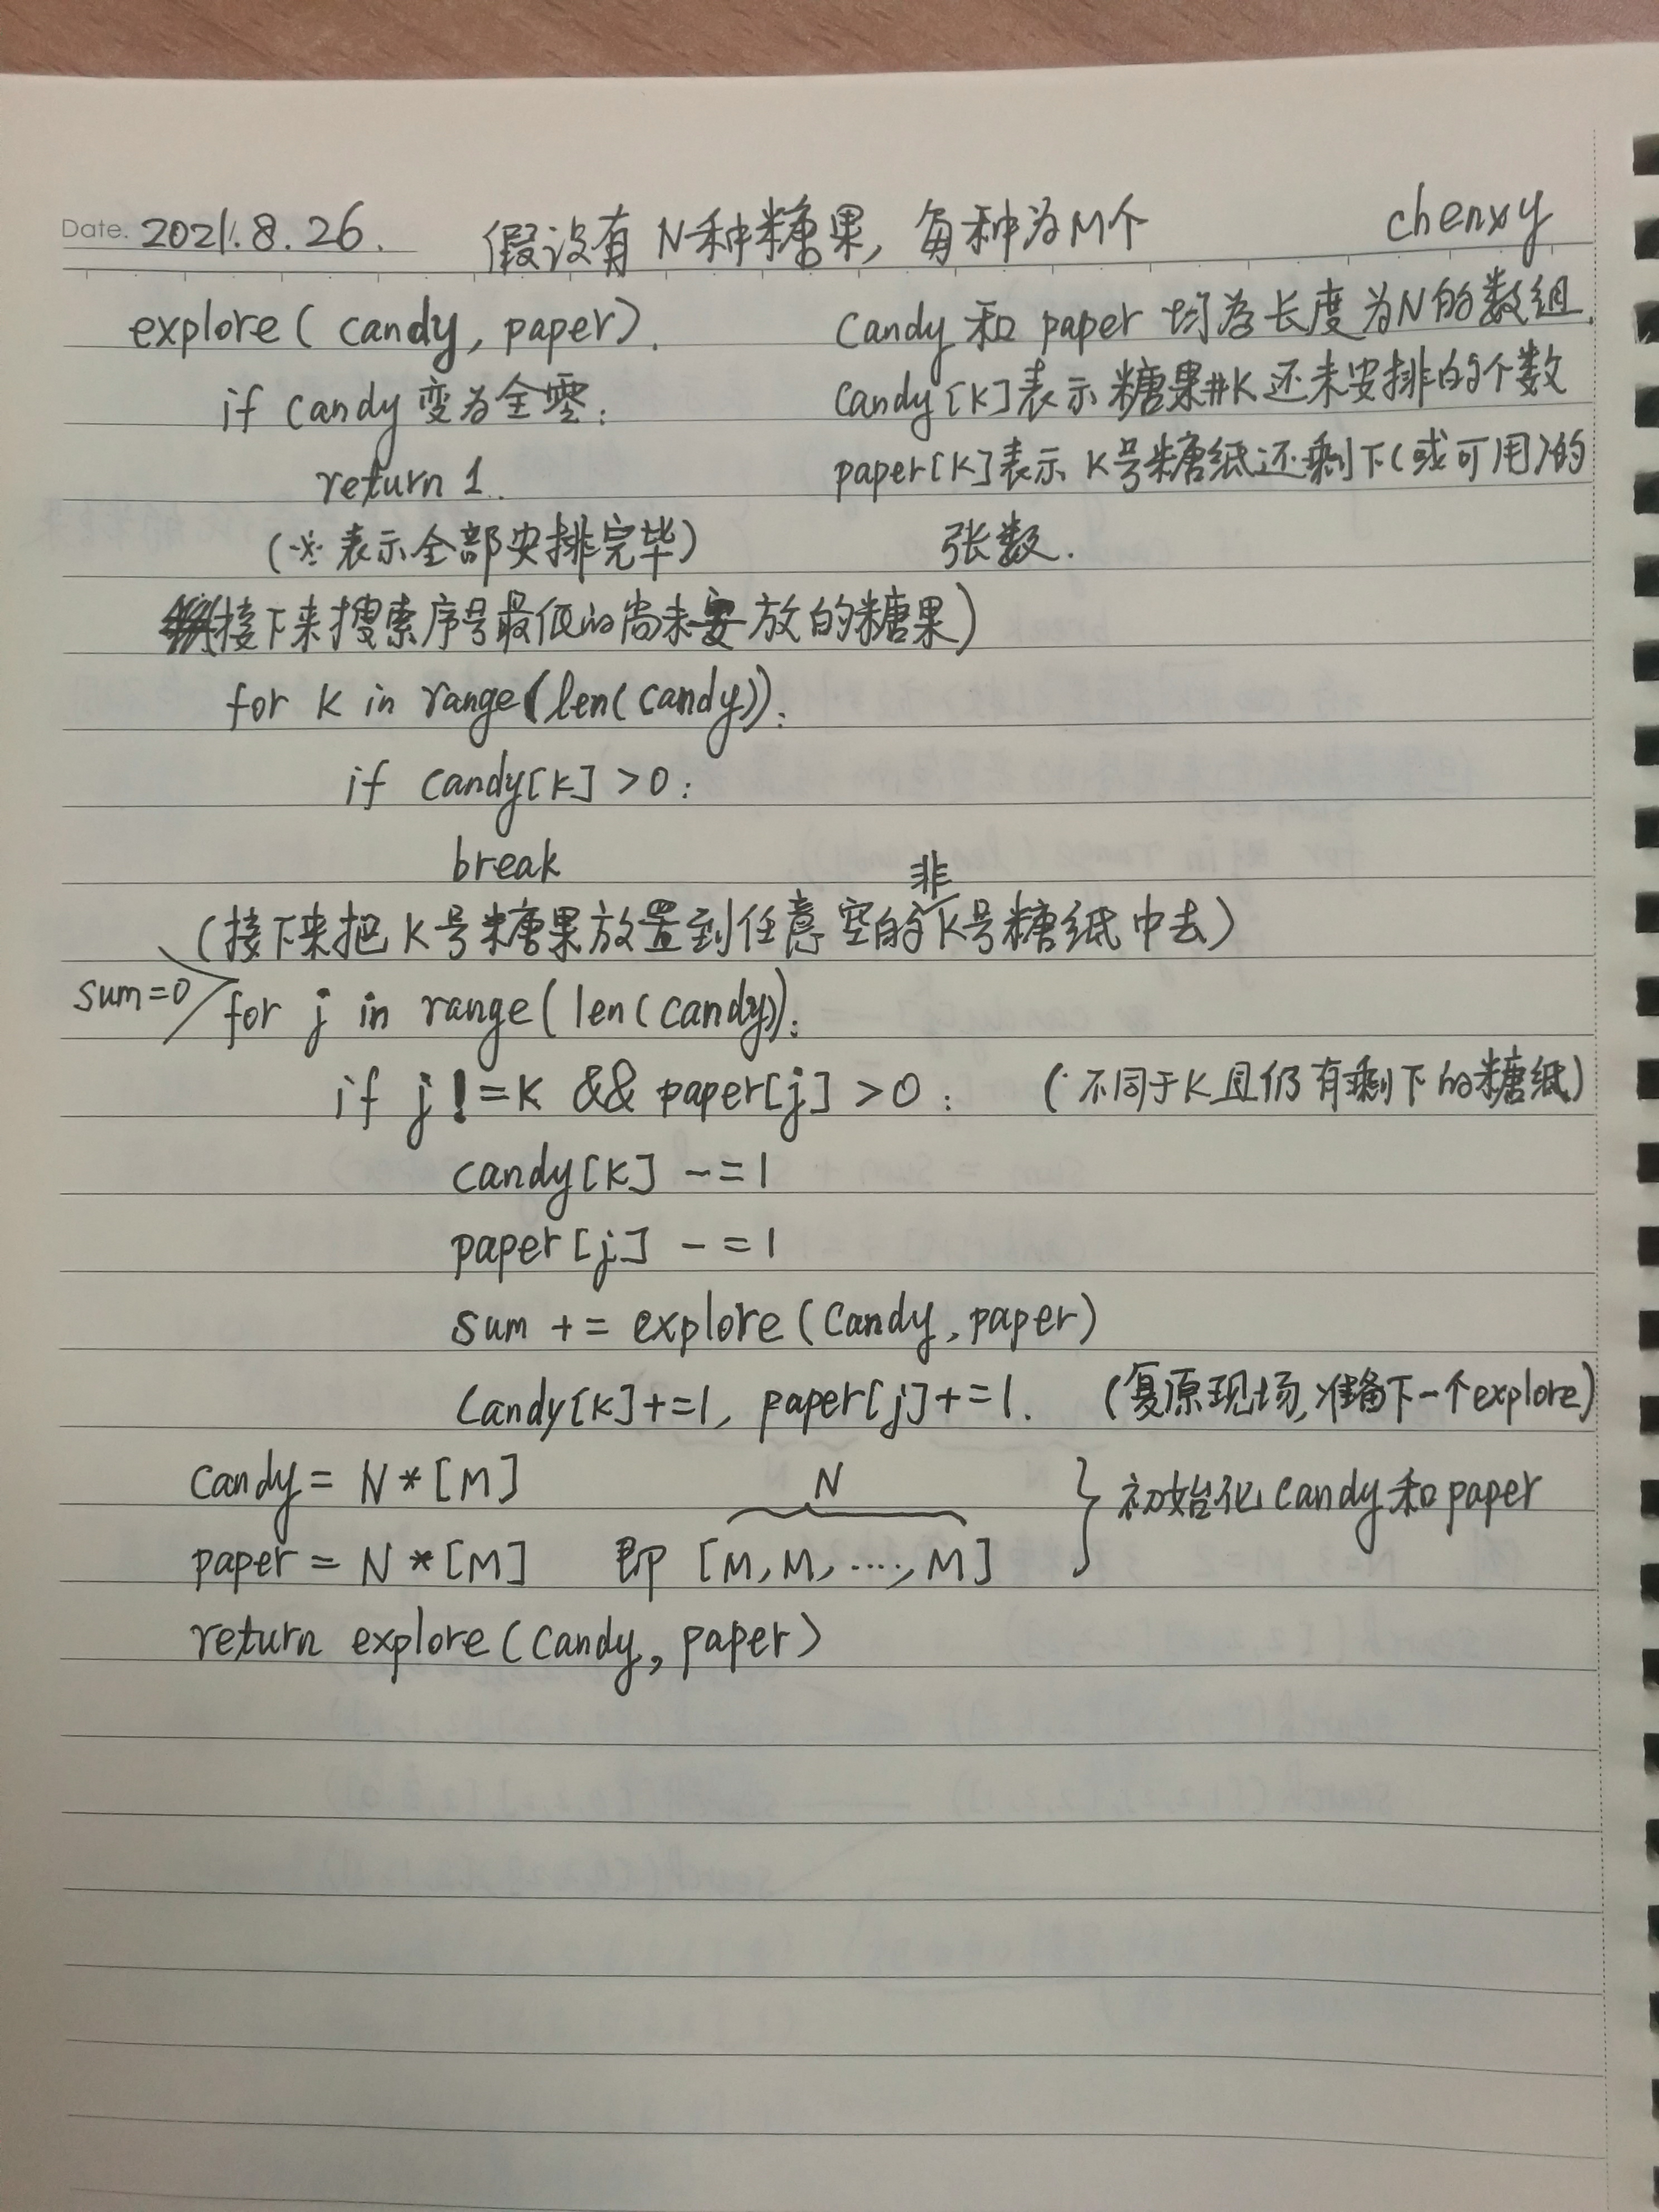 Date. 2021.8.26. 假设有N种糖果,每种为M个 chenxy
explore(candy, paper). Candy和paper均为长度为N的数组.
if candy变为全零: candy[K]表示糖果#K还未安排的个数
return 1. paper[K]表示K号糖纸还剩下(或可用)的
(※表示全部安排完毕) 张数.
接下来搜索序号最低的尚未安放的糖果)
for K in range(len(candy)):
if candy[K] >0:
break
非
(接下来把K号糖果放置到任意空的K号糖纸中去)
sum=0
for j in range(len(candy)):
if j!=K && paper[j] >0: (不同于K且仍有剩下的糖纸)
candy[K] -=1
paper[j] -=1
sum += explore(candy, paper)
candy[K]+=1, paper[j]+=1. (复原现场,准备下一个explore)
candy= N*[M] N } 初始化candy和paper
paper = N*[M] 即 [M,M,....,M]
return explore(candy, paper)